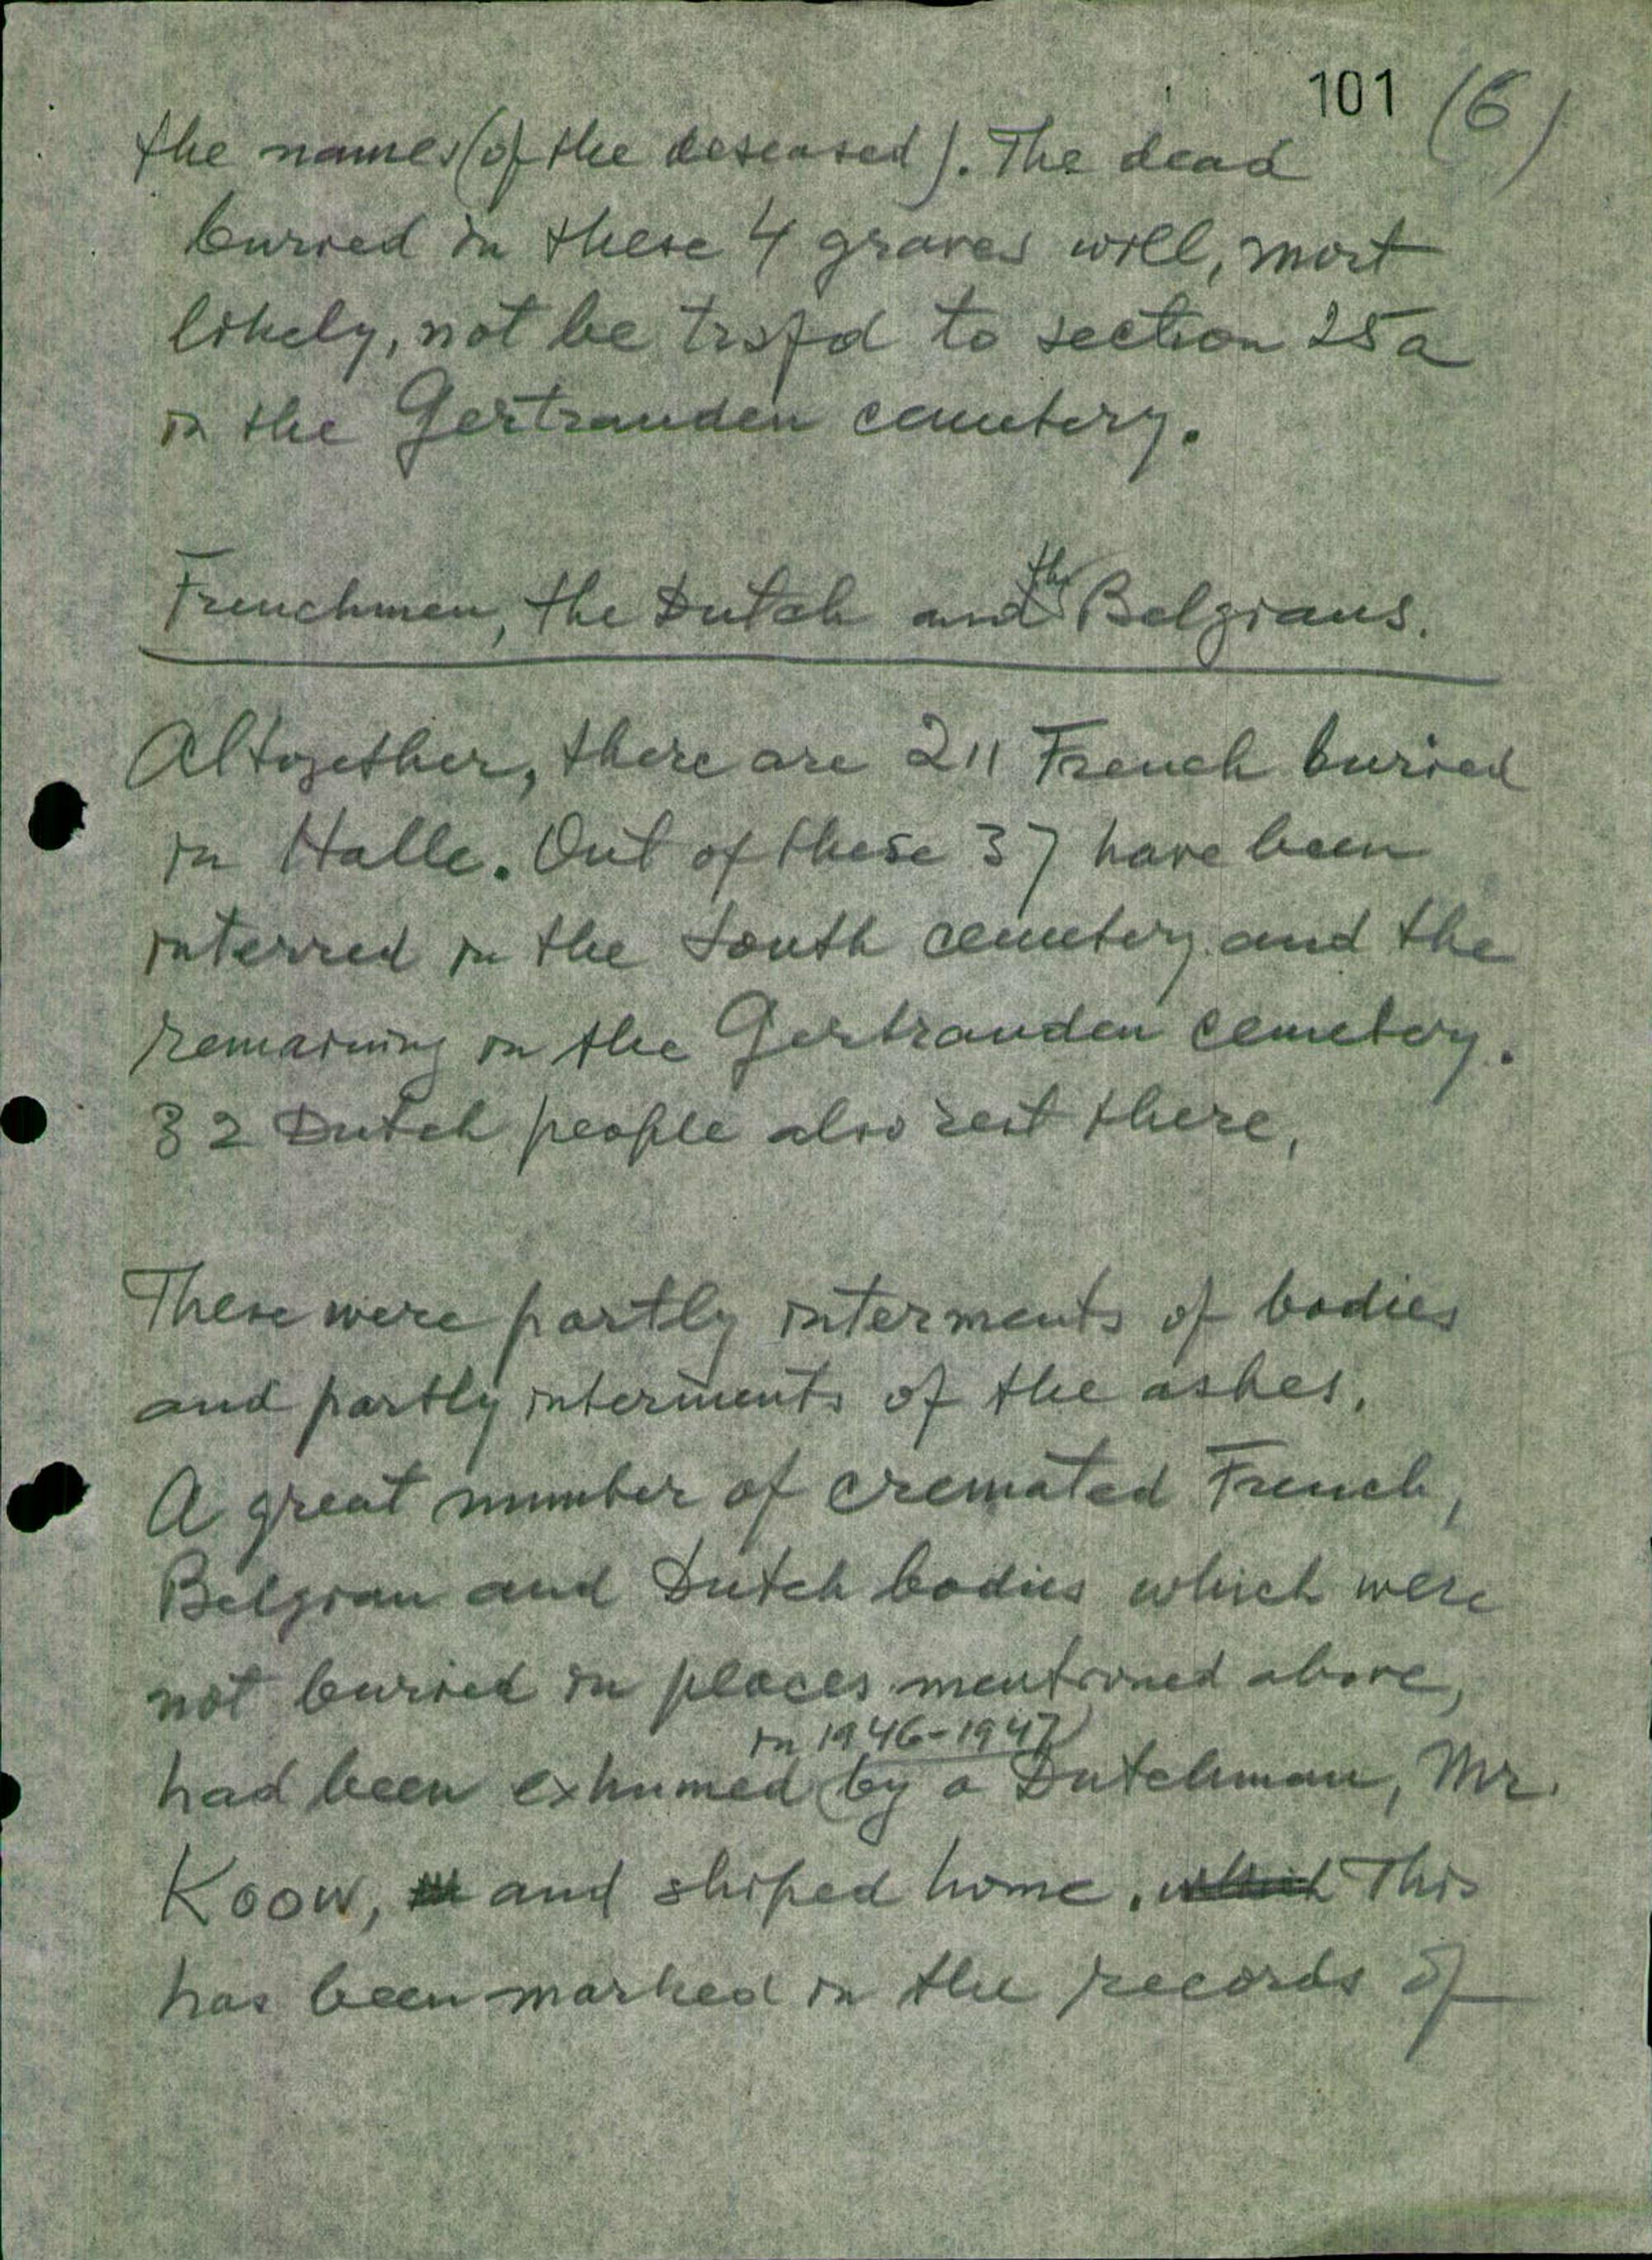 101 (6)
the names (of the deseased). The dead
buried in these 4 graves will, most
likely, not be trsfd to section 25a
in the Gertrauden cemetery.
Frenchmen, the Dutch and the Belgians.
Altogether, there are 211 French buried
in Halle. Out of these 37 have been
interred in the South cemetery and the
remaining in the Gertrauden cemetery.
32 Dutch people also rest there.
These were partly interments of bodies
and partly interments of the ashes.
A great number of cremated French,
Belgian and Dutch bodies which were
not buried in places mentioned above,
in 1946-1947
had been exhumed by a Dutchman, Mr.
Koow, and shiped home. which This
has been marked in the records of